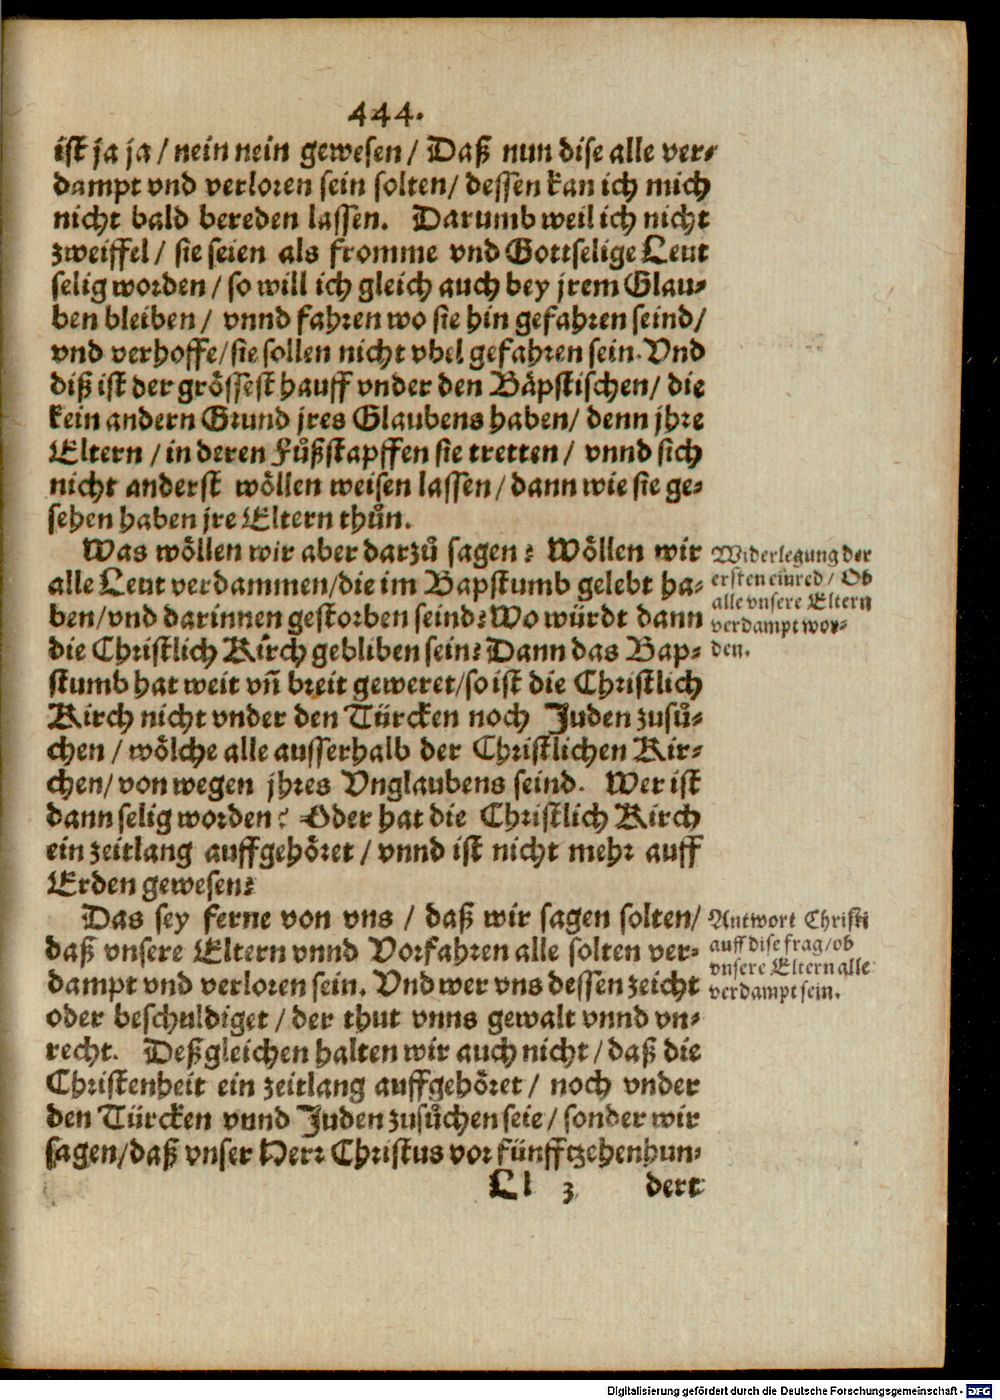 444.
ist ja ja / nein nein gewesen / Daß nun dise alle ver-
dampt vnd verloren sein solten / dessen kan ich mich
nicht bald bereden lassen. Darumb weil ich nicht
zweiffel / sie seien als fromme vnd Gottselige Leut
selig worden / so will ich gleich auch bey jrem Glau-
ben bleiben / vnnd fahren wo sie hin gefahren seind /
vnd verhoffe / sie sollen nicht vbel gefahren sein. Vnd
diß ist der grössest hauff vnder den Bäpstischen / die
kein andern Grund jres Glaubens haben / denn jhre
Eltern / in deren Fůßstapffen sie tretten / vnnd sich
nicht anderst wöllen weisen lassen / dann wie sie ge-
sehen haben jre Eltern thůn.
Was wöllen wir aber darzů sagen? Wöllen wir
alle Leut verdammen / die im Bapstumb gelebt ha-
ben / vnd darinnen gestorben seind? Wo würdt dann
die Christlich Kirch gebliben sein? Dann das Bap-
stumb hat weit vñ breit geweret / so ist die Christlich
Kirch nicht vnder den Türcken noch Juden zusů-
chen / wölche alle ausserhalb der Christlichen Kir-
chen / von wegen jhres Vnglaubens seind. Wer ist
dann selig worden? Oder hat die Christlich Kirch
ein zeitlang auffgehöret / vnnd ist nicht mehr auff
Erden gewesen?
Widerlegung der
ersten einred / Ob
alle vnsere Eltern
verdampt wor-
den.
Das sey ferne von vns / daß wir sagen solten /
daß vnsere Eltern vnnd Vorfahren alle solten ver-
dampt vnd verloren sein. Vnd wer vns dessen zeicht
oder beschuldiget / der thut vnns gewalt vnnd vn-
recht. Deßgleichen halten wir auch nicht / daß die
Christenheit ein zeitlang auffgehöret / noch vnder
den Türcken vnnd Juden zusůchen seie / sonder wir
sagen / daß vnser Herr Christus vor fünfftzehenhun-
Antwort Christi
auff dise frag / ob
vnsere Eltern alle
verdampt sein.
Ll 3 dert
Digitalisierung gefördert durch die Deutsche Forschungsgemeinschaft - DFG